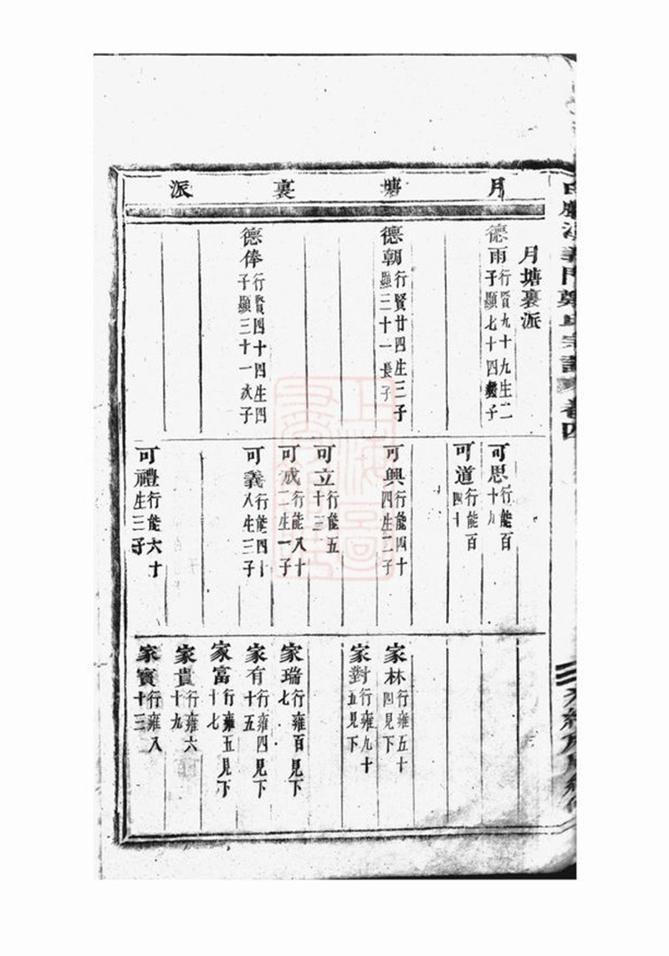 月塘裏派
月塘裏派
德雨行賢九十九生二
子顯七十四幾子
德朝行賢廿四生三子
顯三十一長子
德俸行賢四十四生四
子顯三十一次子
可思行能百
十九
可道行能百
四十
可興行能四十
四生二子
可立行能五
十三
可成行能八十
二生一子
可義行能四十
八生三子
可禮行能六十
生三子
家林行雍五十
四見下
家對行雍九十
五見下
家瑞行雍百
七見下
家有行雍四
十五見下
家富行雍五
十七見下
家貴行雍六
十九
家寶行雍八
十三
義門鄭氏宗譜
卷四